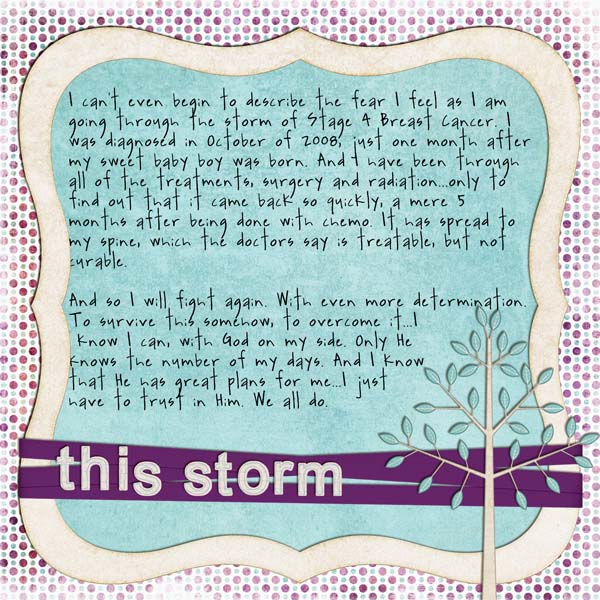 I can't even begin to describe the fear I feel as I am
going through the storm of Stage 4 Breast Cancer. I
was diagnosed in October of 2008, just one month after
my sweet baby boy was born. And I have been through
all of the treatments, surgery and radiation...only to
find out that it came back so quickly, a mere 5
months after being done with chemo. It has spread to
my spine, which the doctors say is treatable, but not
curable.
And so I will fight again. With even more determination.
To survive this somehow, to overcome it...I
know I can, with God on my side. Only He
knows the number of my days. And I know
that He has great plans for me...I just
have to trust in Him. We all do.
this storm